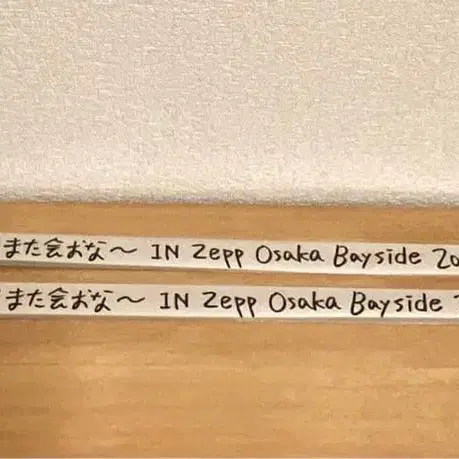 また会おな〜 IN Zepp Osaka Bayside 20
また会おな〜 IN Zepp Osaka Bayside